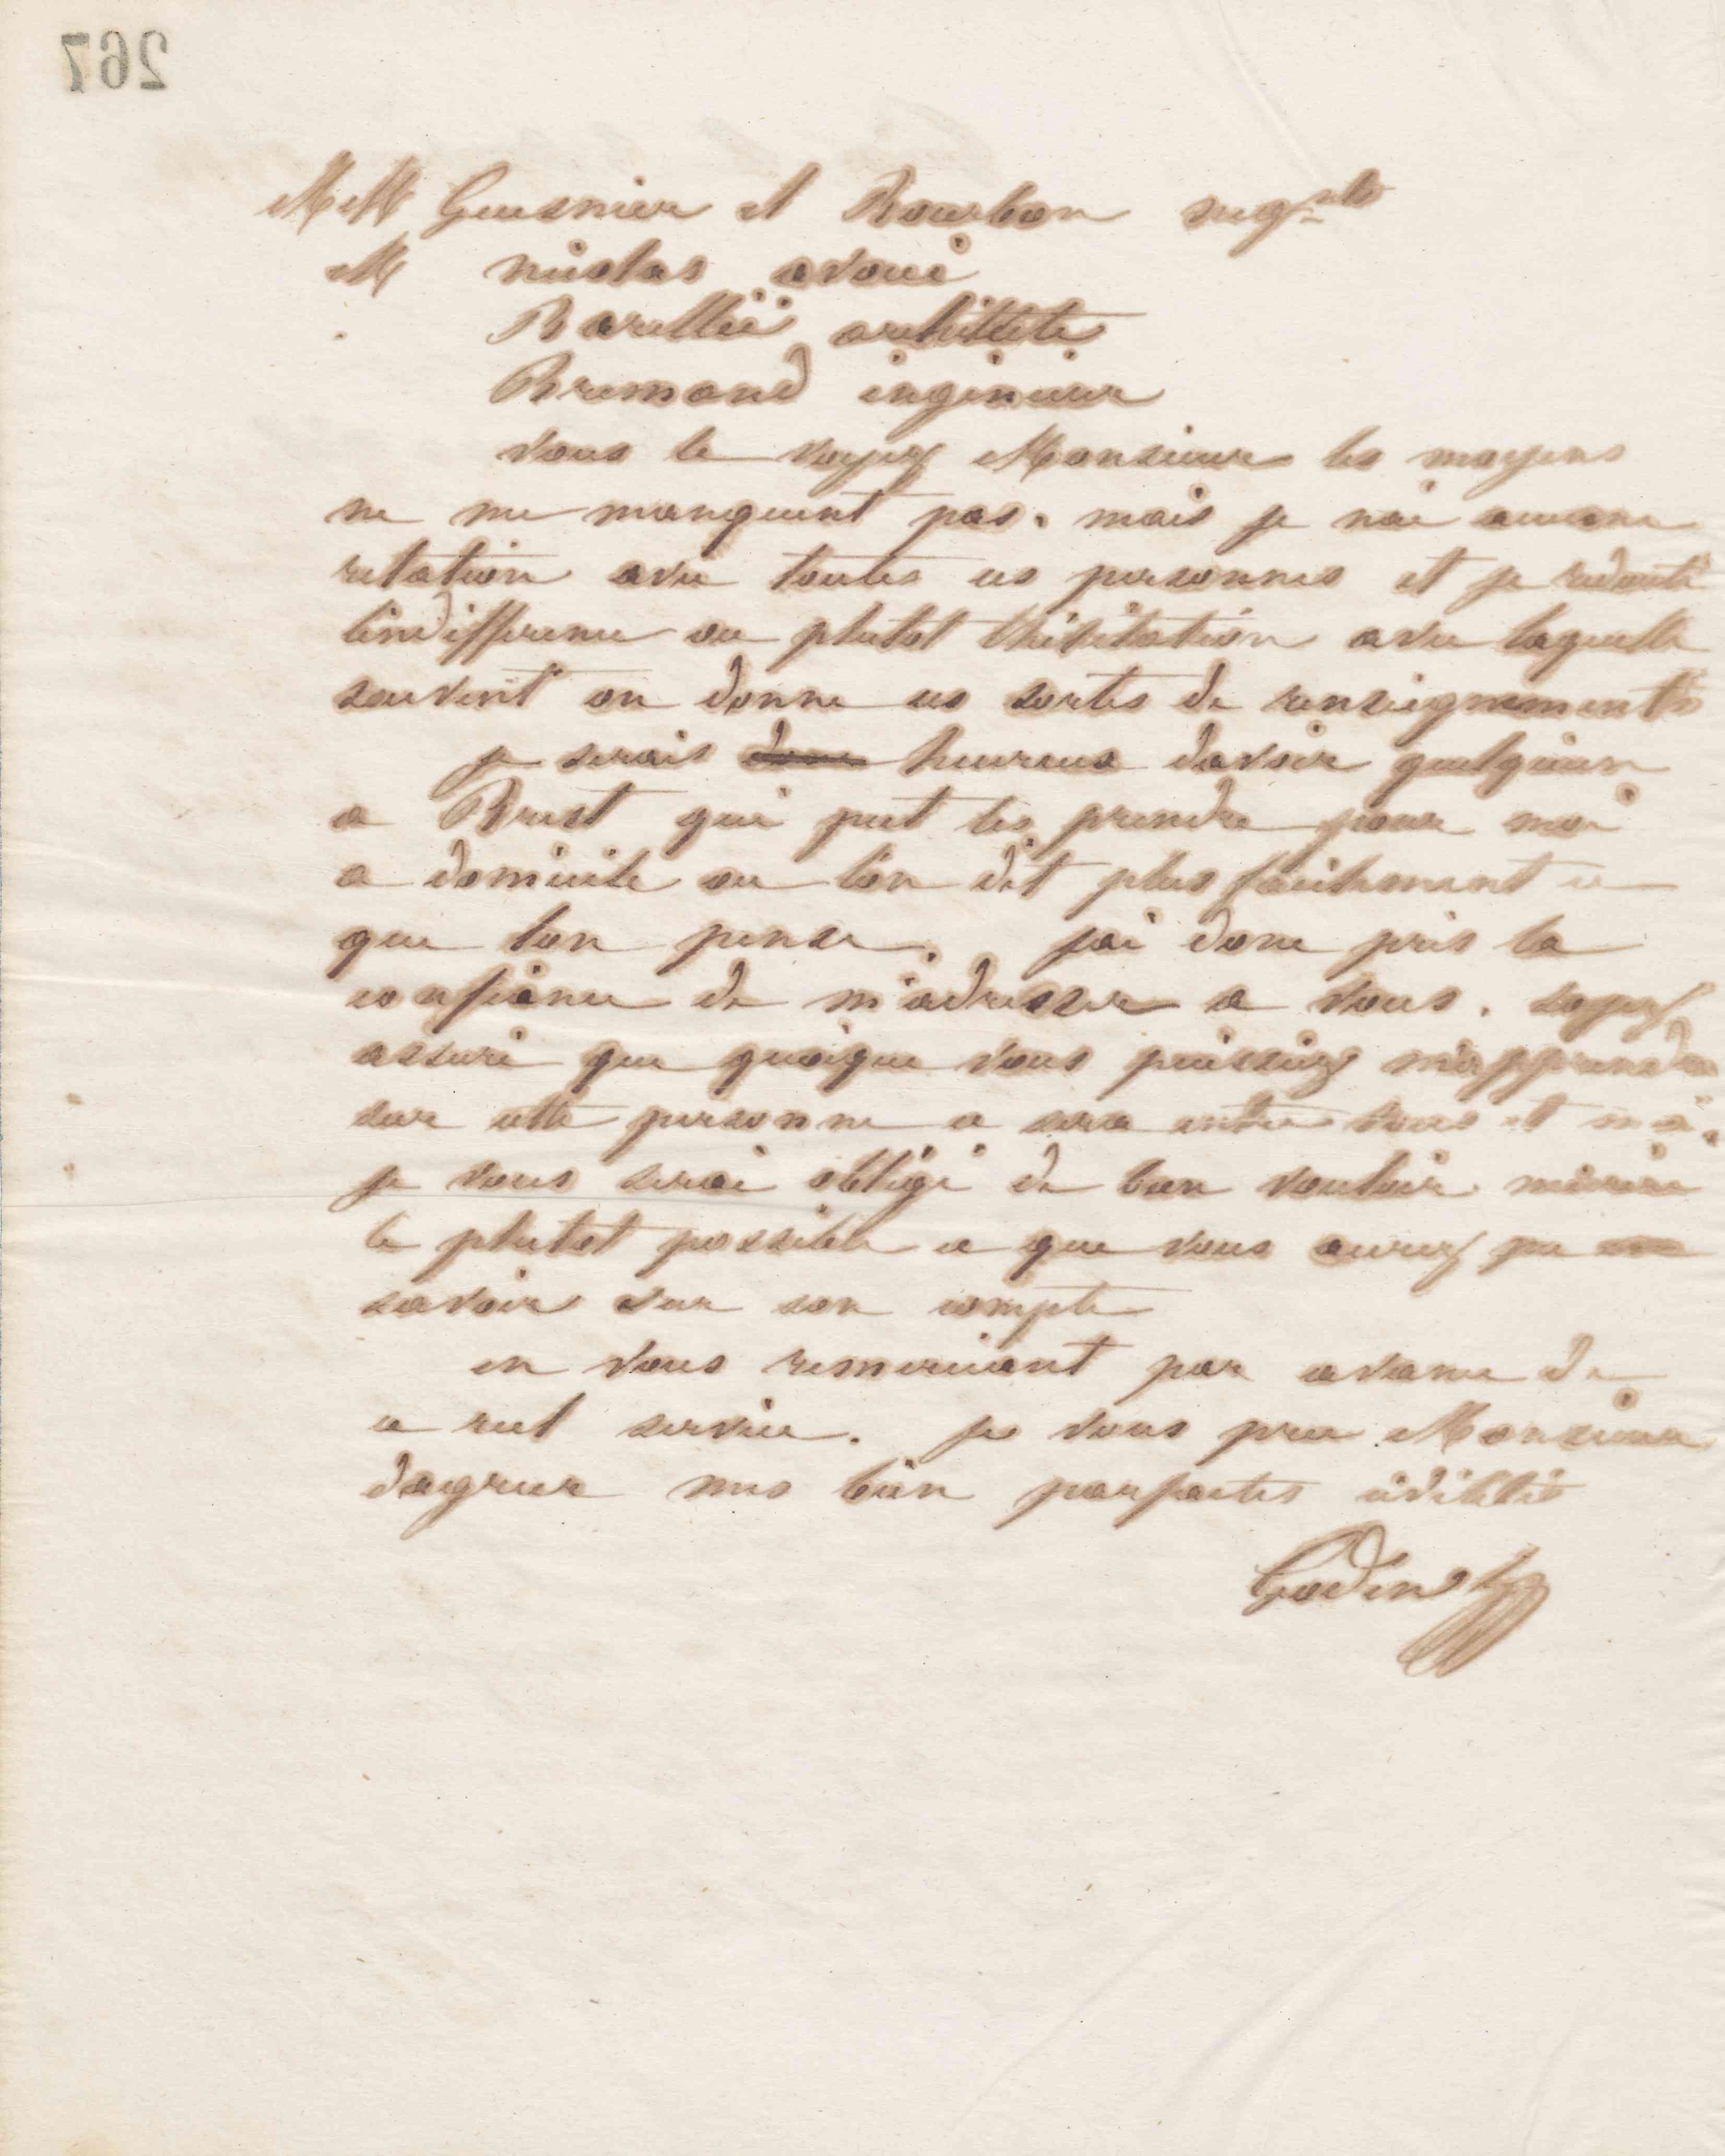 267
MM Guesnier et Bourbon neg.nts
M nicolas avoué
Barillié architecte
Bremond ingénieur
vous le voyez Monsieur les moyens
ne me manquent pas. mais je nai aucune
relation avec toutes ces personnes et je redoute
lindifference ou plutot lhésitation avec laquelle
souvent on donne ces sortes de renseignements
je serais donc heureux davoir quelquun
a Brest qui put les prendre pour moi
a domicile ou lon dit plus facilement ce
que lon pense. jai donc pris la
confiance de m'adresser a vous. soyez
assuré que quoique vous puissiez m'apprendre
sur cette personne ce sera entre vous et moi.
je vous serai obligé de bien vouloir mécrire
le plutot possible ce que vous aurez pu
savoir sur son compte
en vous remerciant par avance de
ce reel service. je vous prie Monsieur
dagreer mes bien parfaites civilités
Godin